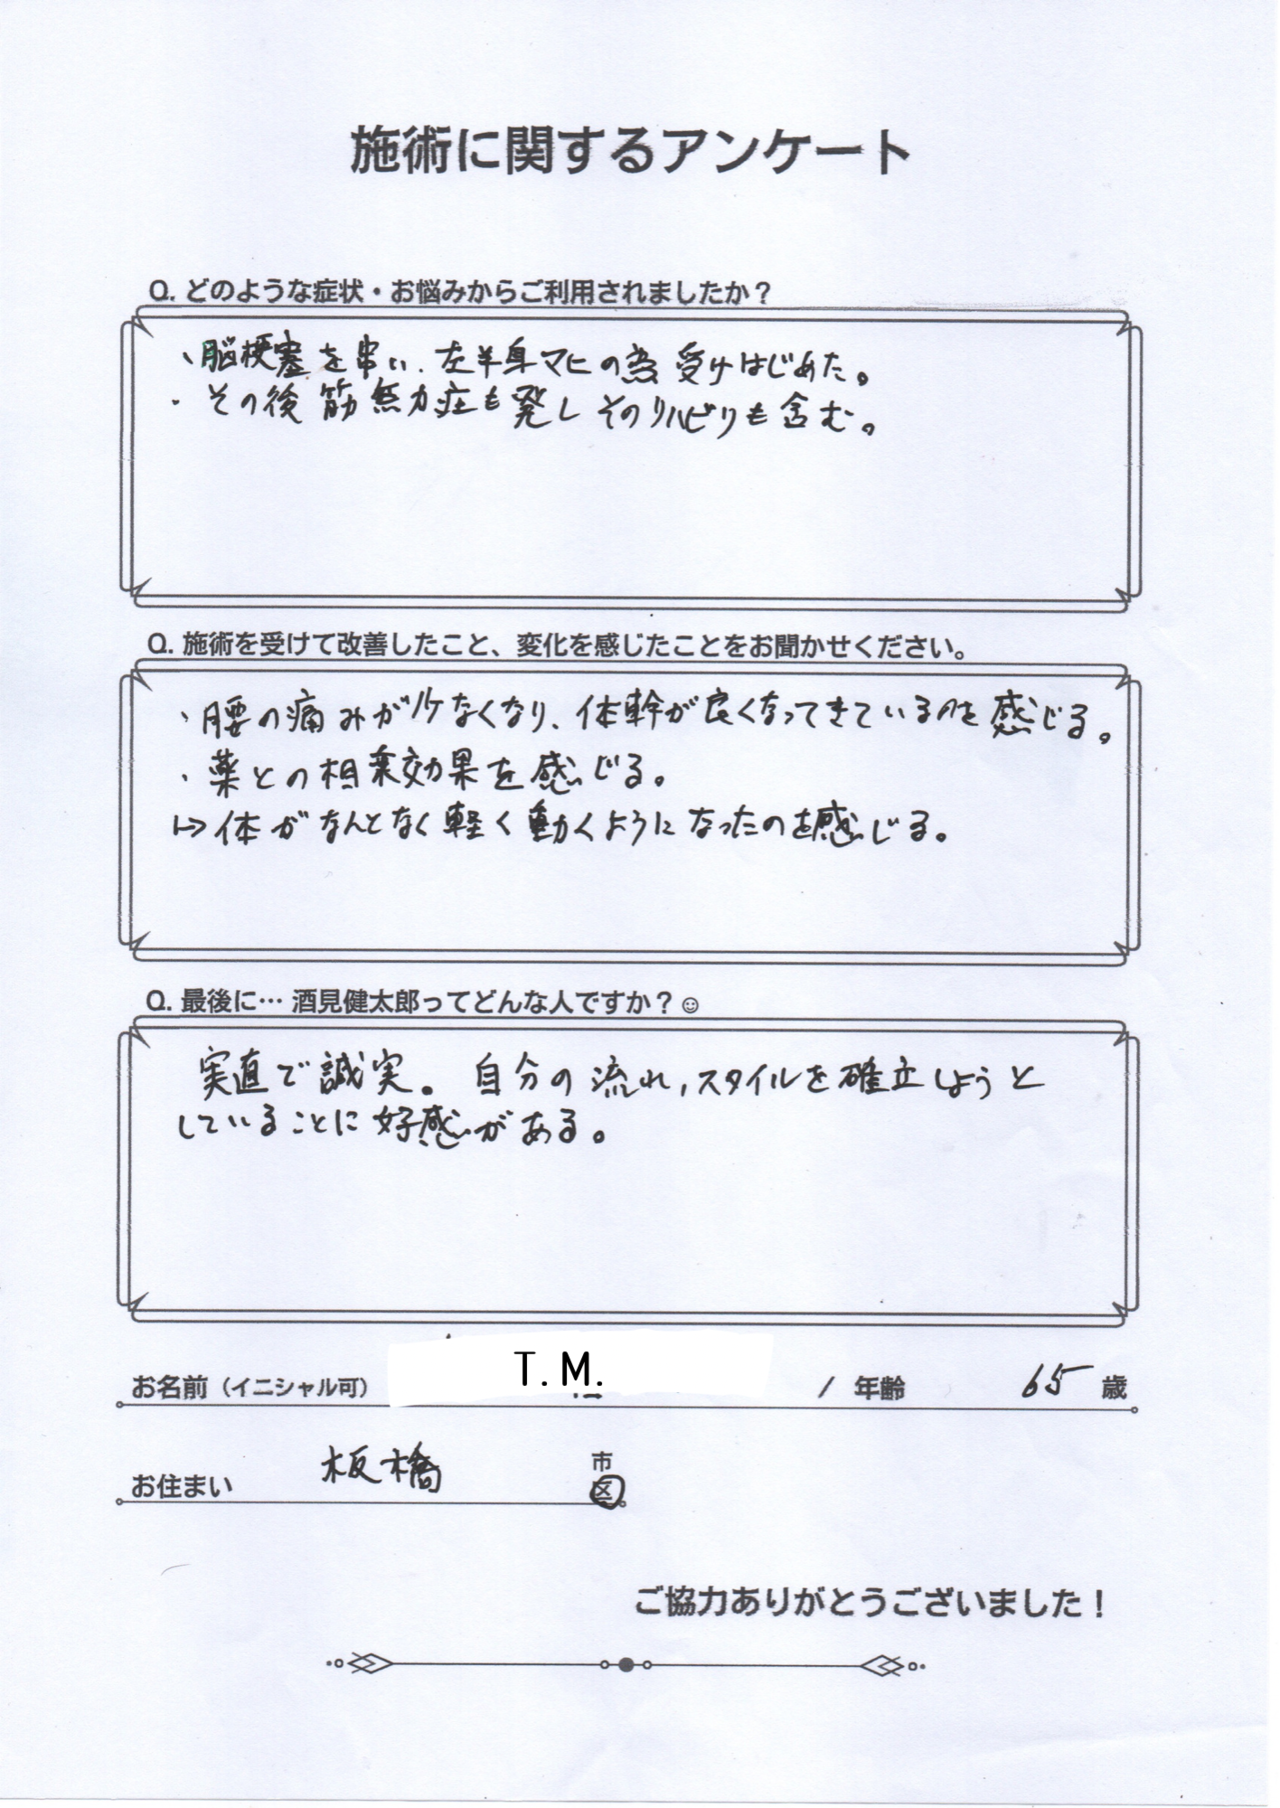 施術に関するアンケート
Q. どのような症状・お悩みからご利用されましたか？
・脳梗塞を患い、左半身マヒの為受けはじめた。
・その後筋無力症も発しそのリハビリも含む。
Q. 施術を受けて改善したこと、変化を感じたことをお聞かせください。
・腰の痛みが少なくなり、体幹が良くなってきているのを感じる。
・薬との相乗効果を感じる。
↳体がなんとなく軽く動くようになったのを感じる。
Q. 最後に… 酒見健太郎ってどんな人ですか？☺
実直で誠実。自分の流れ,スタイルを確立しようと
していることに好感がある。
お名前（イニシャル可） T.M. / 年齢 65 歳
お住まい 板橋 市 区
ご協力ありがとうございました！